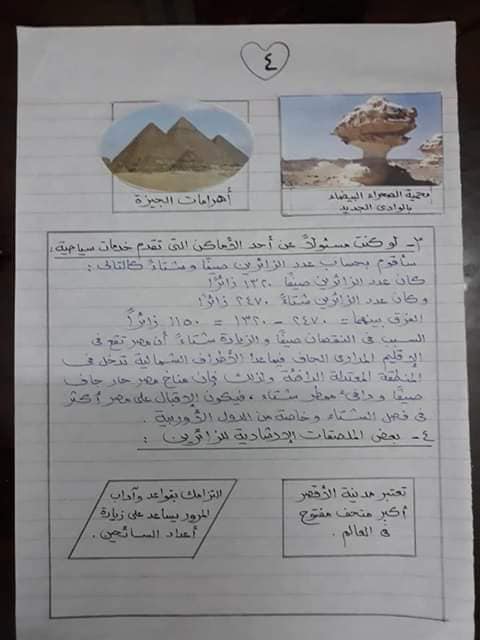 ٤
محمية الصحراء البيضاء
بالوادى الجديد
أهرامات الجيزة
٣- لو كنت مسئولاً عن أحد الأماكن التى تقدم خدمات سياحية:
سأقوم بحساب عدد الزائرين صيفًا وشتاءً كالتالى:
كان عدد الزائرين صيفًا ١٣٢٠ زائرًا
وكان عدد الزائرين شتاءً ٢٤٧٠ زائرًا
الفرق بينهما = ٢٤٧٠ - ١٣٢٠ = ١١٥٠ زائرًا
السبب فى النقصان صيفًا والزيادة شتاءً أن مصر تقع فى
الإقليم المدارى الجاف فيما عدا الأطراف الشمالية تدخل فى
المنطقة المعتدلة الدافئة ولذلك فإن مناخ مصر حار جاف
صيفًا ودافئ ممطر شتاء، فيكون الإقبال على مصر أكثر
فى فصل الشتاء وخاصة من الدول الأوربية.
٤- بعض الملصقات الإرشادية للزائرين:
تعتبر مدينة الأقصر
أكبر متحف مفتوح
فى العالم.
التزامك بقواعد وآداب
المرور يساعد على زيارة
أعداد السائحين.